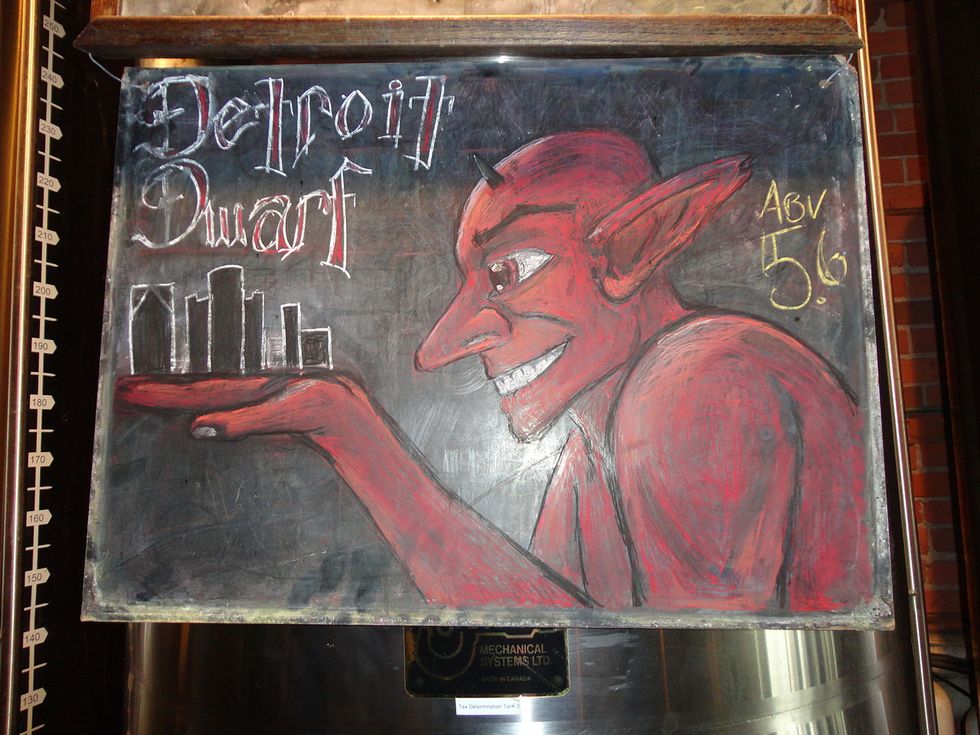 Detroit
Dwarf
ABV
5.6
250
240
230
220
210
200
190
180
170
160
150
140
130
MECHANICAL
SYSTEMS LTD.
MADE IN CANADA
Tax Determination Tank 3